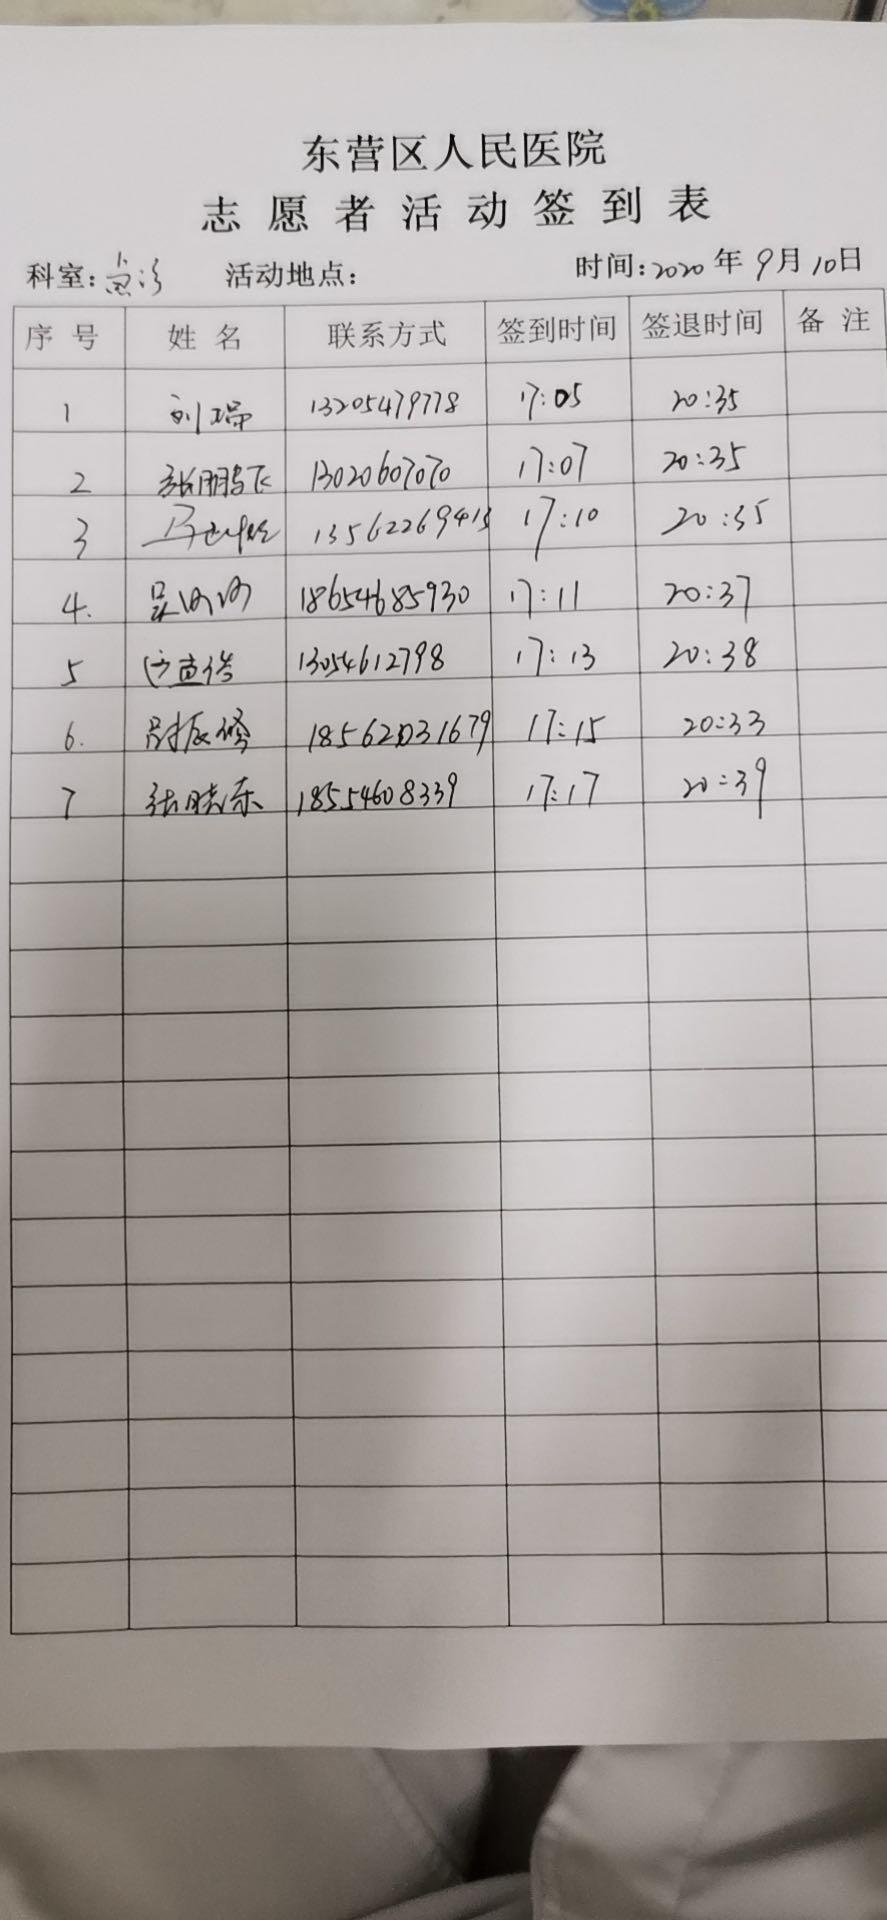 东营区人民医院
志愿者活动签到表
科室: 活动地点: 时间:2020年9月10日
序号 姓名 联系方式 签到时间 签退时间 备注
1 刘瑞 13205479778 17:05 20:35
2 张鹏飞 13020607070 17:07 20:35
3 1356226941 17:10 20:35
4. 吴 18654685930 17:11 20:37
5 13054612798 17:13 20:38
6. 尉振修 18562031679 17:15 20:33
7 张晓东 18554608339 17:17 20:39